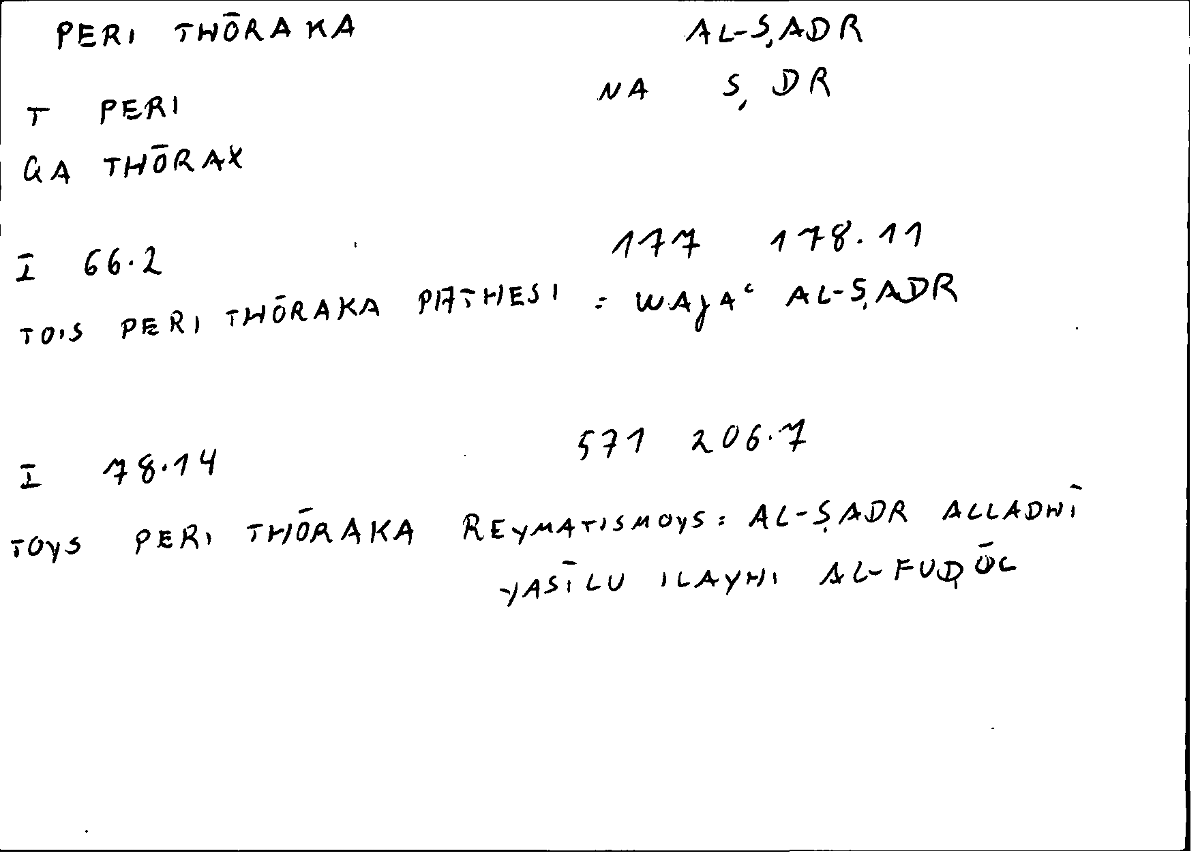 PERI THŌRAKA AL-ṢADR
T PERI NA Ṣ DR
GA THŌRAX
I 66.2 177 178.11
TOIS PERI THŌRAKA PATHESI = WAJAʿ AL-ṢADR
I 78.14 571 206.7
TOYS PERI THŌRAKA REYMATISMOYS: AL-ṢADR ALLADHĪ
YASĪLU ILAYHI AL-FUḌŪL